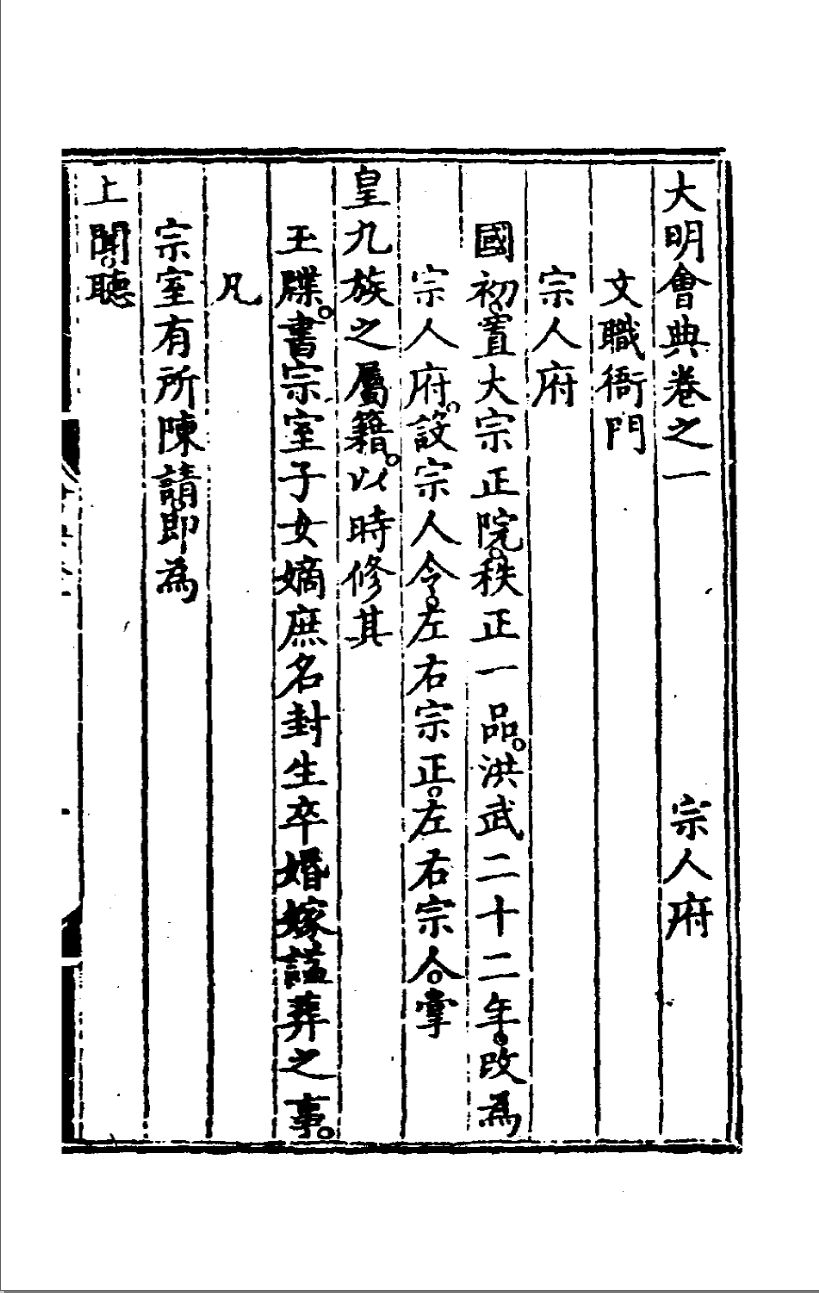 大明會典卷之一 宗人府
文職衙門
宗人府
國初置大宗正院。秩正一品。洪武二十二年。改為
宗人府。設宗人令。左右宗正。左右宗人。掌
皇九族之屬籍。以時修其
玉牒。書宗室子女嫡庶名封生卒婚嫁謚葬之事。
凡
宗室有所陳請。即為
上聞。聽